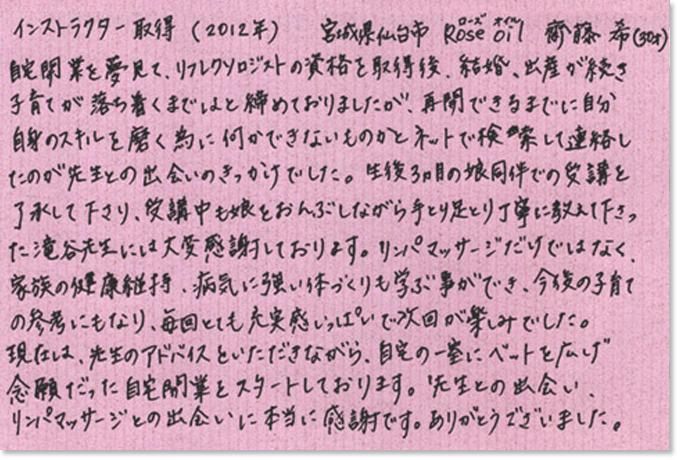 インストラクター取得（2012年）　宮城県仙台市 Rose Oil ローズ オイル 齊藤 希(30才)
自宅開業を夢見て、リフレクソロジストの資格を取得後、結婚、出産が続き
子育てが落ち着くまではと締めておりましたが、再開できるまでに自分
自身のスキルを磨く為に何かできないものかとネットで検索して連絡し
たのが先生との出会いのきっかけでした。生後3ヵ月の娘同伴での受講を
了承して下さり、受講中も娘をおんぶしながら手とり足とり丁寧に教えて下さっ
た滝谷先生には大変感謝しております。リンパマッサージだけではなく、
家族の健康維持、病気に強い体づくりも学ぶ事ができ、今後の子育て
の参考にもなり、毎回とても充実感いっぱいで次回が楽しみでした。
現在は、先生のアドバイスをいただきながら、自宅の一室にベットを広げ
念願だった自宅開業をスタートしております。先生との出会い、
リンパマッサージとの出会いに本当に感謝です。ありがとうございました。